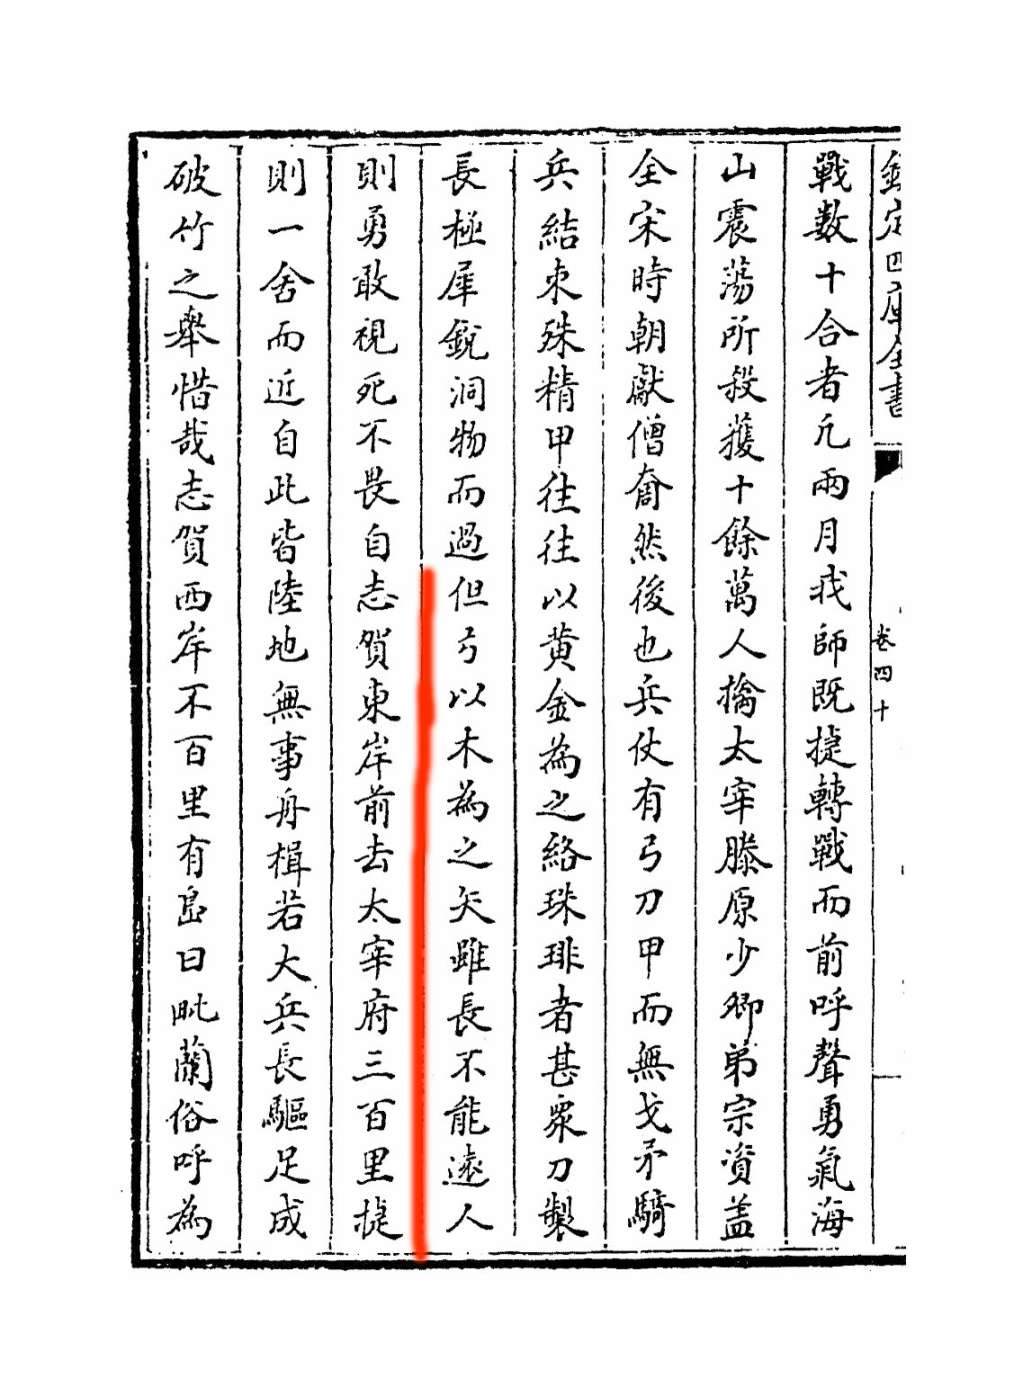 欽定四庫全書
卷四十
戰数十合者凢兩月我師既捷轉戰而前呼聲勇氣海
山震蕩所殺獲十餘萬人擒太宰滕原少卿弟宗資盖
全宋時朝獻僧奝然後也兵仗有弓刀甲而無戈矛騎
兵結束殊精甲往往以黄金為之絡珠琲者甚衆刀製
長極犀銳洞物而過但弓以木為之矢雖長不能遠人
則勇敢視死不畏自志賀東岸前去太宰府三百里捷
則一舍而近自此皆陸地無事舟楫若大兵長驅足成
破竹之舉惜哉志賀西岸不百里有島曰毗蘭俗呼為